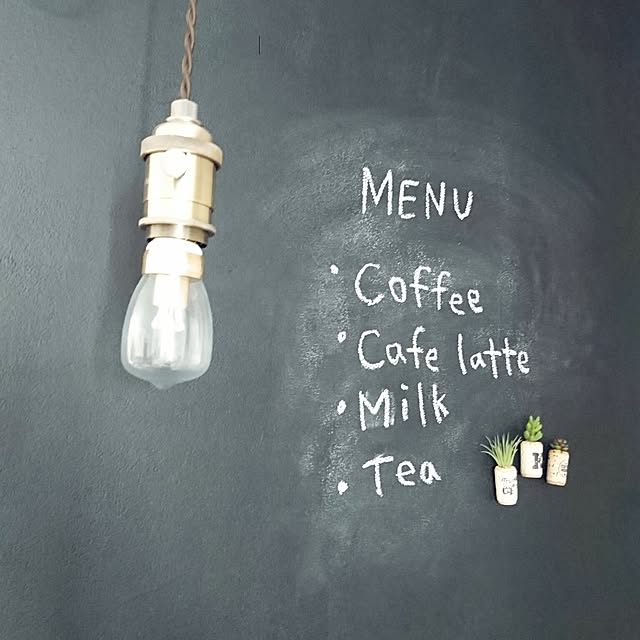 MENU
• Coffee
• Cafe latte
• Milk
• Tea